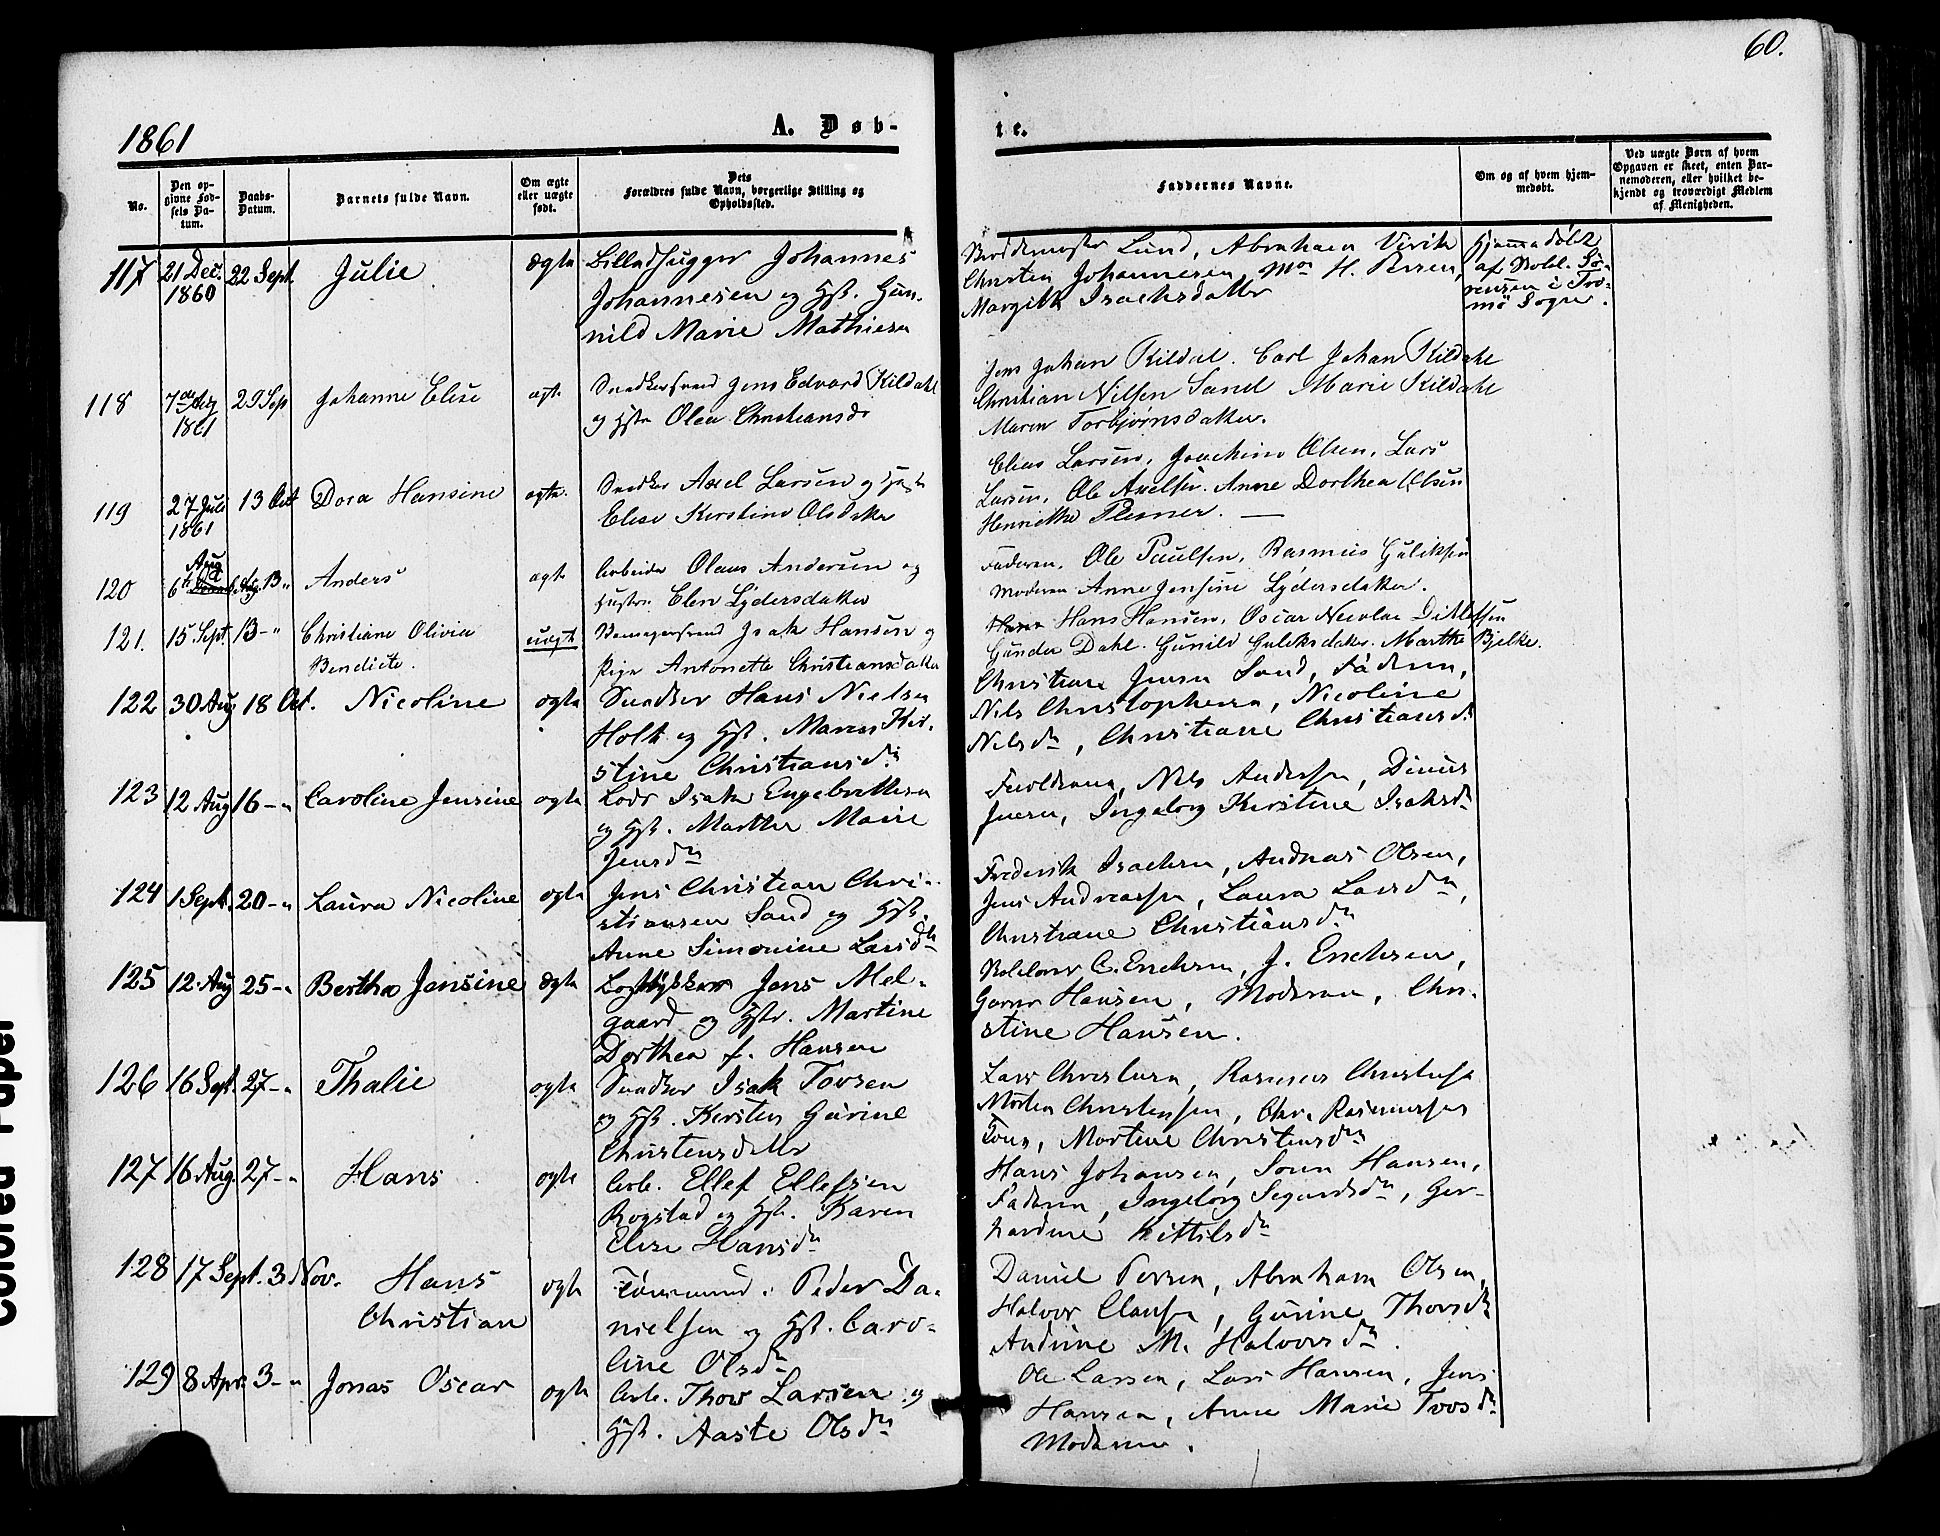 60.
1861
A. Døb-
te.
No.
Den op-
givne Fød-
sels Da-
tum.
Daabs-
Datum.
Barnets fulde Navn.
Om ægte
eller uægte
født.
Dets
Forældres fulde Navn, borgerlige Stilling og
Opholdssted.
Faddernes Navne.
Om og af hvem hjem-
medøbt.
Ved uægte Børn af hvem
Opgaven er skeet, enten Bar-
nemoderen, eller hvilket be-
kjendt og troværdigt Medlem
af Menigheden.
117 21 Dec. 1860 22 Sept. Julie ægte Billedhugger Johannes
Johannesen og Hst. Gun-
nild Marie Mathisen
Lund, Abraham Virik
Christen Johannesen, H. Persen,
Margith Isachsdatter
Hjemmedøbt
af Sø-
rensen i Tro-
mø Sogn.
118 7de Aug 1861 29 Sep Johanne Elise ægte Snedkersvend Jens Edvard Kildahl
og Hstr Olea Christiansdr
Jens Johan Kildal. Carl Johan Kildahl
Christian Nilsen Sand Marie Kildahl
Maren Torbjørnsdatter.
119 27 Juli 1861 13 Oct Dora Hansine ægte. Snedker Axel Larsen og
Elise Kirstine Olsdatter
Elias Larsen, Joachim Olsen, Lars
Larsen, Ole Axelsen. Anne Dorthea Olsen
Henriette Plesner. —
120 6te Aug 13 " Anders ægte Arbeider Olaus Andersen og
Hustru Elen Lydersdatter
Faderen, Ole Paulsen, Rasmus Guliksen
Moderen Anne Jensine Lydersdatter.
121. 15 Sept. 13 - " Christiane Olivia
Bendicte. uægte Isak Hansen og
Pige Antonette Christiansdatter
Hans Hansen, Oscar Nicolai Ditlefsen
Gunder Dahl. Gunild Guliksdatter. Marthe Bjelke.
122 30 Aug 18 Oct. Nicoline ægte Snedker Hans Nielsen
Holt og Hst. Maren Kir-
stine Christiansdr
Christian Jensen Sand, Faderen,
Nils Christophersen, Nicoline
Nilsdr, Christiane Christiansdr
123 12 Aug 16 - " Caroline Jensine ægte Lods Isak Engebrethsen
og Hst. Marthe Marie
Jensdr
Forældrene, Nils Andersen, Dinius
Jensen, Ingeborg Kirstine Isaksdr
124 1 Sept. 20 - " Laura Nicoline ægte Jens Christian Chri-
stiansen Sand og Hst.
Anne Simonine Larsdtr
Frederik Isachsen, Andreas Olsen,
Jens Andreassen, Laura Larsdr,
Christiane Christiansdr
125 12 Aug 25 - " Bertha Jensine ægte Jens Mel-
gaard og Hstr. Martine
Dorthea f. Hansen
C. Erichsen, J. Erichsen,
Hansen, Moderen, Chri-
stine Hansen.
126 16 Sept. 27 - " Thalie ægte Snedker Isak Torsen
og Hst. Kirsten Gurine
Christensdatter
Lars Christensen, Rasmus Christensen
Morten Christensen, Chr. Rasmussen
Martine Christensdr
127 16 Aug. 27 - " Hans ægte Arb. Ellef Ellefsen
Rogstad og Hst. Karen
Elise Hansdr
Hans Johansen, Hansen,
Faderen, Ingeborg Segurdsdr, Ger-
hardine Kittilsdr
128 17 Sept. 3 Nov. Hans
Christian ægte Tømmermd. Peder Da-
nielsen og Hst. Caro-
line Olsdr
Daniel Persen, Abraham Olsen,
Halvor Clausen, Gurine Thorsdr
Andrine M. Halvorsdr.
129 8 Apr. 3 - " Jonas Oscar ægte Arb. Thor Larsen og
Hst. Aaste Olsdr
Ole Larsen, Lars Hansen, Jens
Hansen, Anne Marie Torsdr
Moderen.
Colored Paper